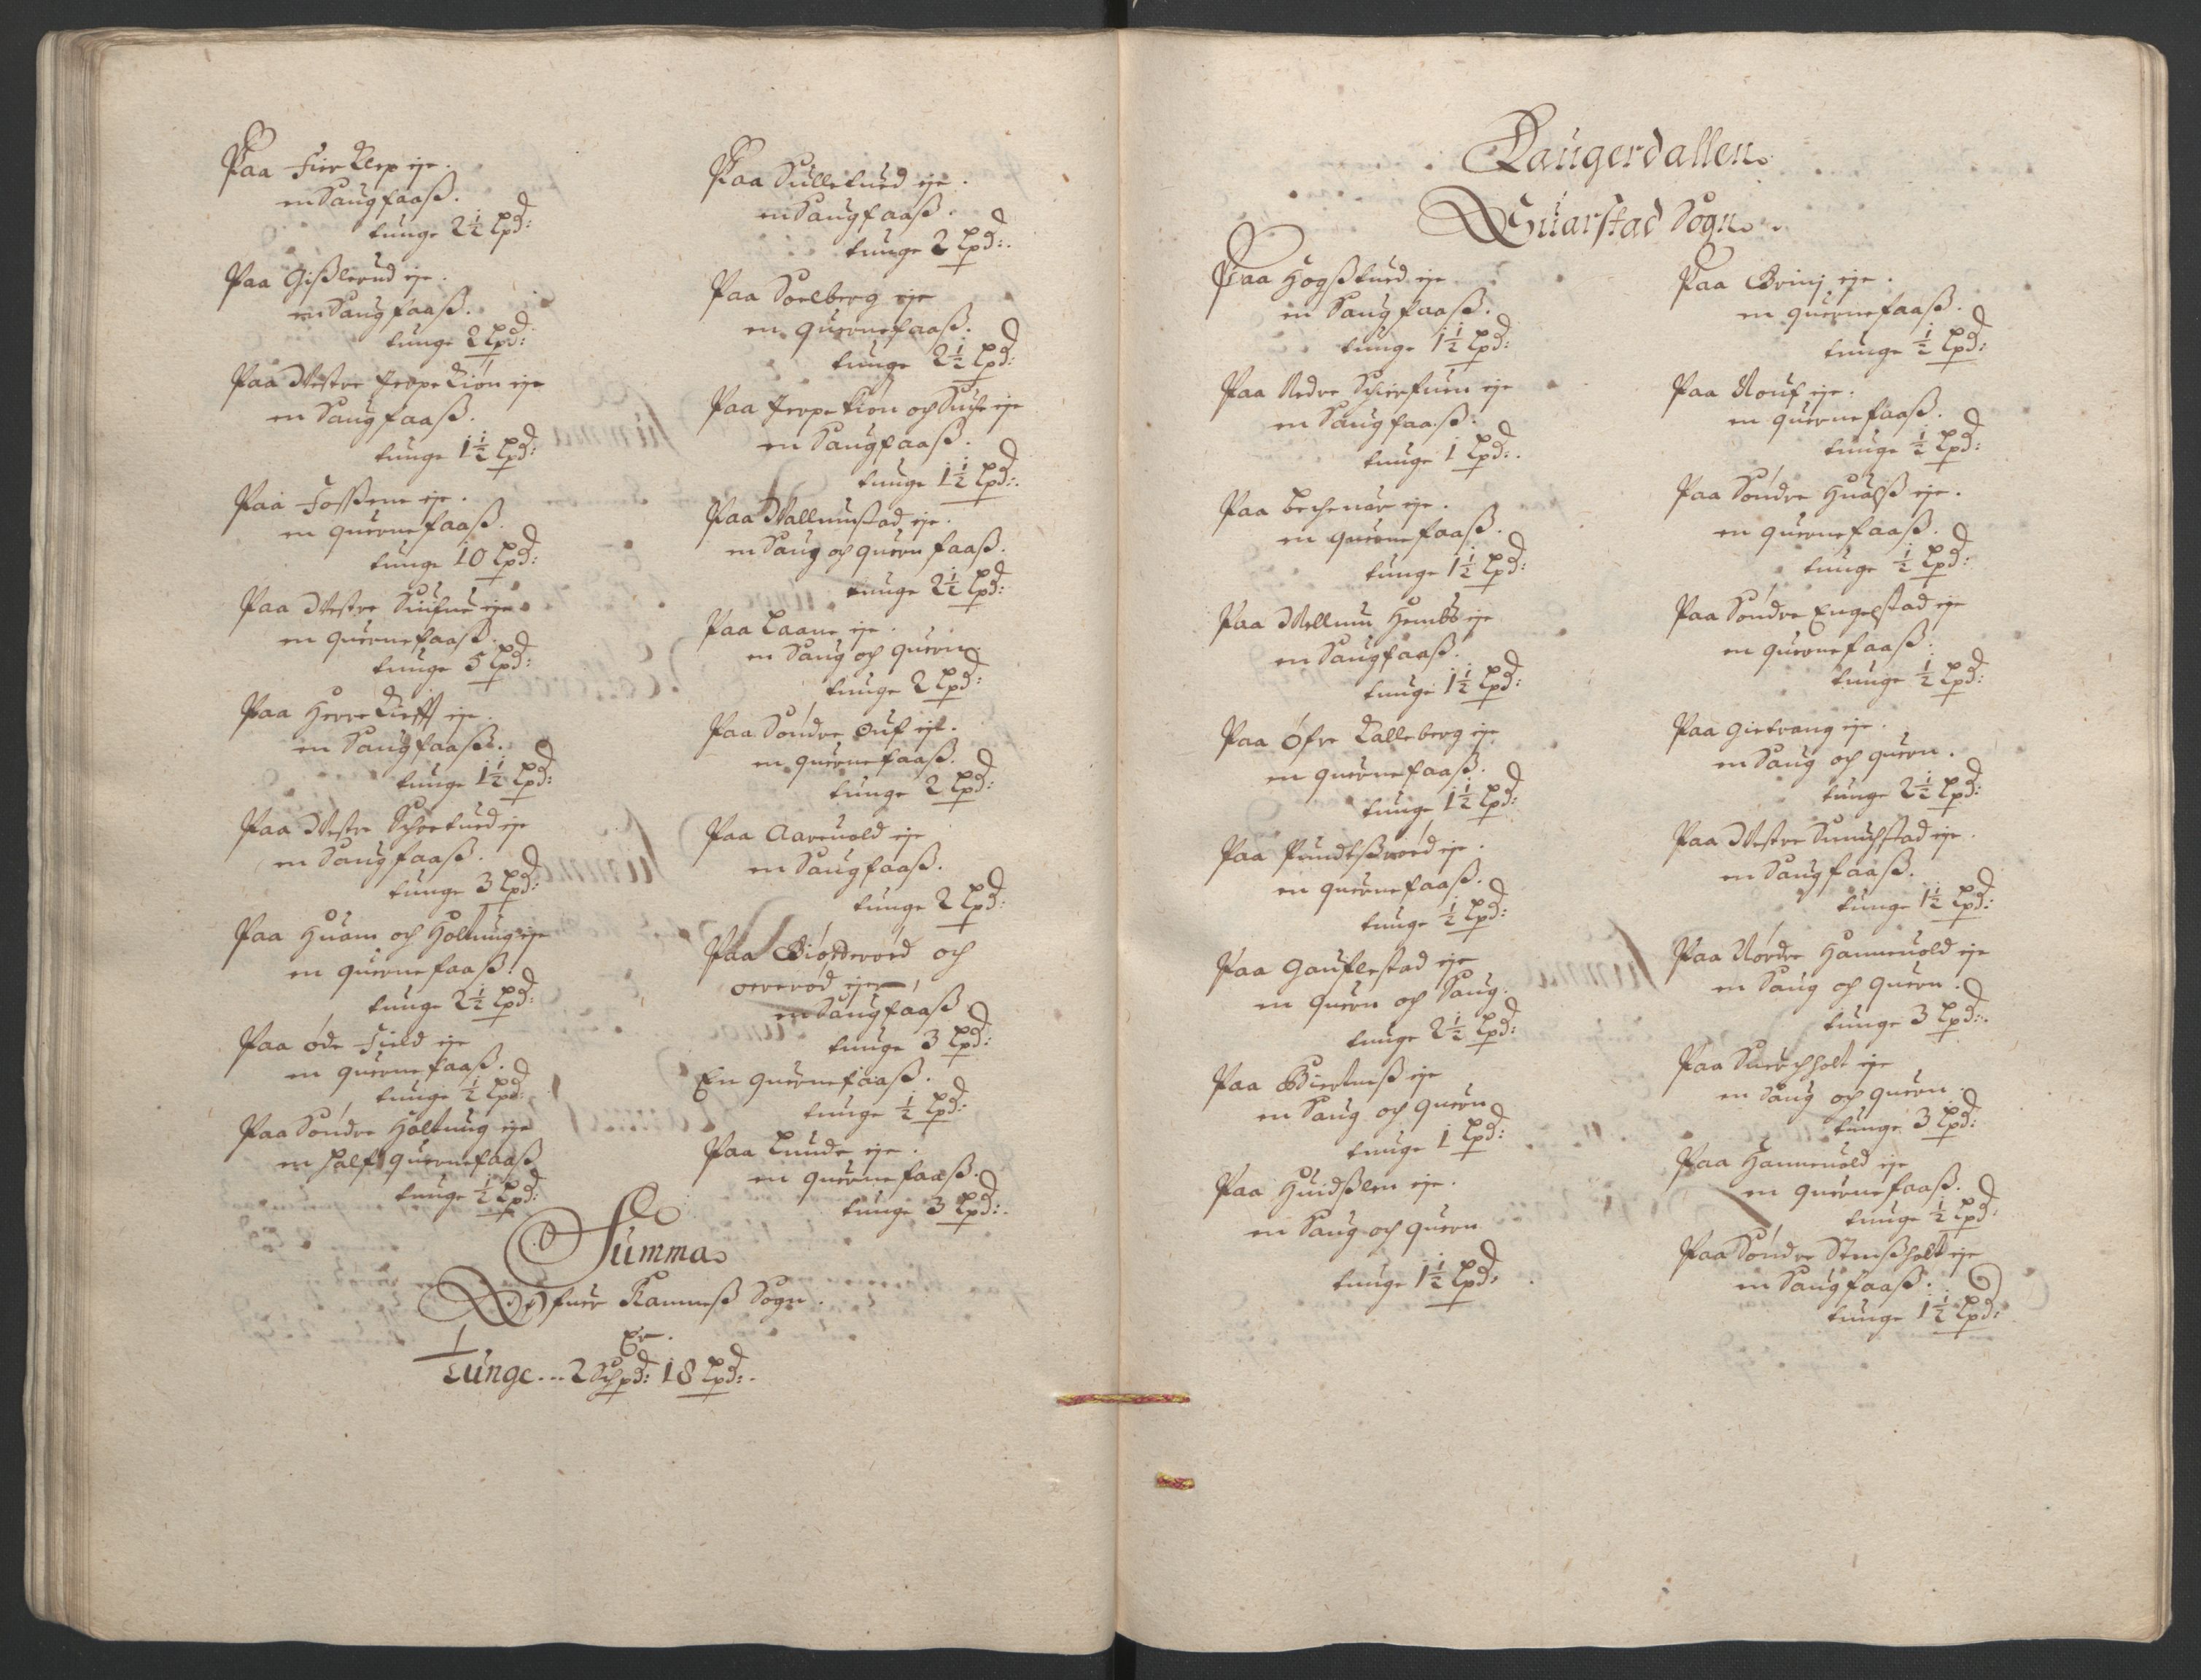 Paa Fierklep eje.
en Saugfaaß.
tunge 2½ Lpd:
Paa Gißlerud eje.
en Saugfaaß.
tunge 2 Lpd:
Paa Westre Prope Kiøn eje
en Saugfaaß.
tunge 1½ Lpd:
Paa Foßene eje.
en quernefaaß.
tunge 10 Lpd:
Paa Westre eje
en quernefaaß.
tunge 5 Lpd:
Paa Herre Kieft eje.
en Saugfaaß.
tunge 1½ Lpd:
Paa Westre Schretued eje
en Saugfaaß.
tunge 3 Lpd:
Paa Huam och Holtung eje
en quernefaaß.
tunge 2½ Lpd:
Paa øde Field eje
en quernefaaß.
tunge ½ Lpd:
Paa Søndre Holtung eje
en half quernefaaß
tunge ½ Lpd:
Paa Sulletued eje.
en Saugfaaß.
tunge 2 Lpd:.
Paa Soelberg eje
en quernefaaß.
tunge 2½ Lpd:
Paa Prope Kiøn och eje
en Saugfaaß.
tunge 1½ Lpd:.
Paa Wallumstad eje.
en Saug og quern faaß.
tunge 2½ Lpd:
Paa Laane eje.
en Saug och quern.
tunge 2 Lpd:
Paa Søndre Ouf eje.
en quernefaaß.
tunge 2 Lpd:
Paa Aareuold eje
en Saugfaaß.
tunge 2 Lpd:
Paa och
ererød ejer,
en Saugfaaß
tunge 3 Lpd:
En quernefaaß.
tunge ½ Lpd:
Paa Lunde eje.
en quernefaaß.
tunge 3 Lpd:.
Summa
Ofuer Ramneß Sogn.
Er.
Tunge... 2 Schpd: 18 Lpd:.
Laugerdallen.
Quarstad Sogn.
Paa Hogßtued eje
en Saugfaaß.
tunge 1½ Lpd:
Paa Nedre Schierfuen eje
en Saugfaaß.
tunge 1 Lpd:.
Paa Bechenar eje.
en quernefaaß.
tunge 1½ Lpd:
Paa Mellum Hembs eje
en Saugfaaß.
tunge 1½ Lpd:
Paa Øfre Kalleberg eje
en quernefaaß.
tunge 1½ Lpd:
Paa eje.
en quernefaaß.
tunge ½ Lpd:
Paa Gauflestad eje
en quern och Saug.
tunge 2½ Lpd:
Paa Biertneß eje
en Saug och quern
tunge 1 Lpd:
Paa Huidßlen eje.
en Saug och quern
tunge 1½ Lpd:
Paa Brinj eje.
en quernefaaß.
tunge ½ Lpd:
Paa Rouf eje.
en quernefaaß.
tunge ½ Lpd:
Paa Søndre Hualß eje.
en quernefaaß.
tunge ½ Lpd:
Paa Søndre Engelstad eje
en quernefaaß.
tunge ½ Lpd:
Paa Gietrang eje.
en Saug och quern.
tunge 2½ Lpd:
Paa Westre eje.
en Saugfaaß.
tunge 1½ Lpd:
Paa Nordre Hanneuold eje
en Saug och quern.
tunge 3 Lpd:.
Paa Suerchholt eje
en Saug och quern
tunge 3 Lpd:
Paa Hanneuold eje
en quernefaaß.
tunge ½ Lpd:
Paa Søndre Stenßholt eje
en Saugfaaß.
tunge 1½ Lpd: